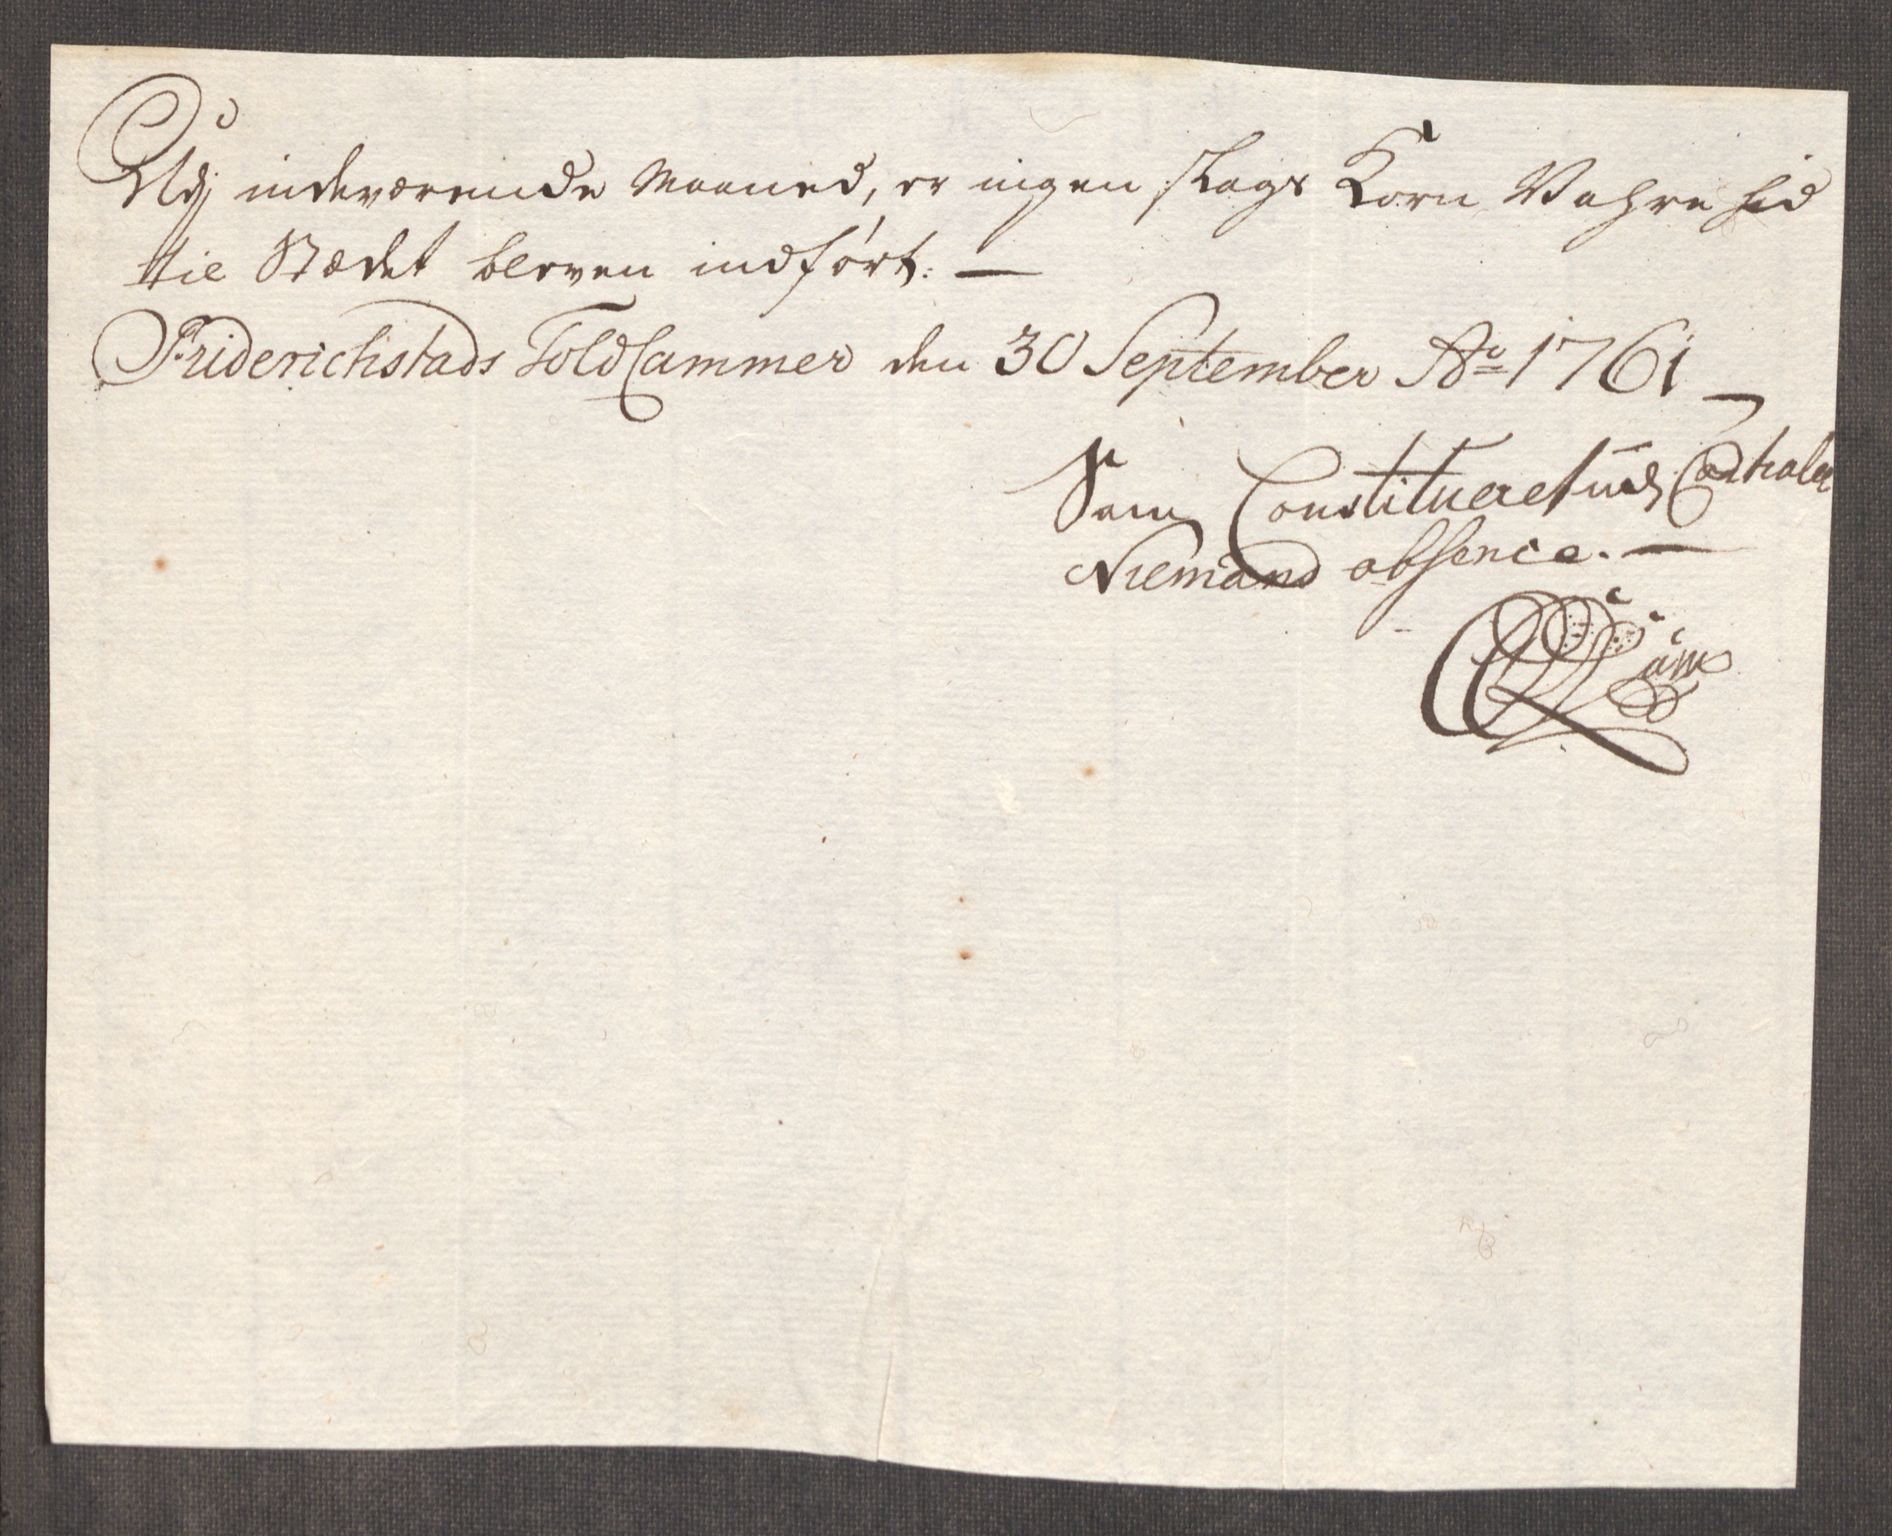 Udj indeværende Maaned, er ingen slags Korn Vahre hid
til Stædet bleven indført. —
Friderichstads ToldCammer den 30 September Ao 1761 —
Som Constitueret udj
Niemand absence. —